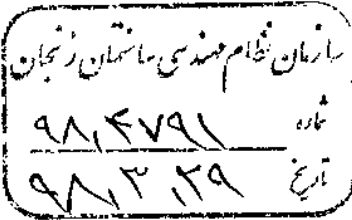 سازمان نظام مهندسی ساختمان زنجان
شماره ۹۸,۴۷۹۱
تاریخ ۹۸,۳,۲۹